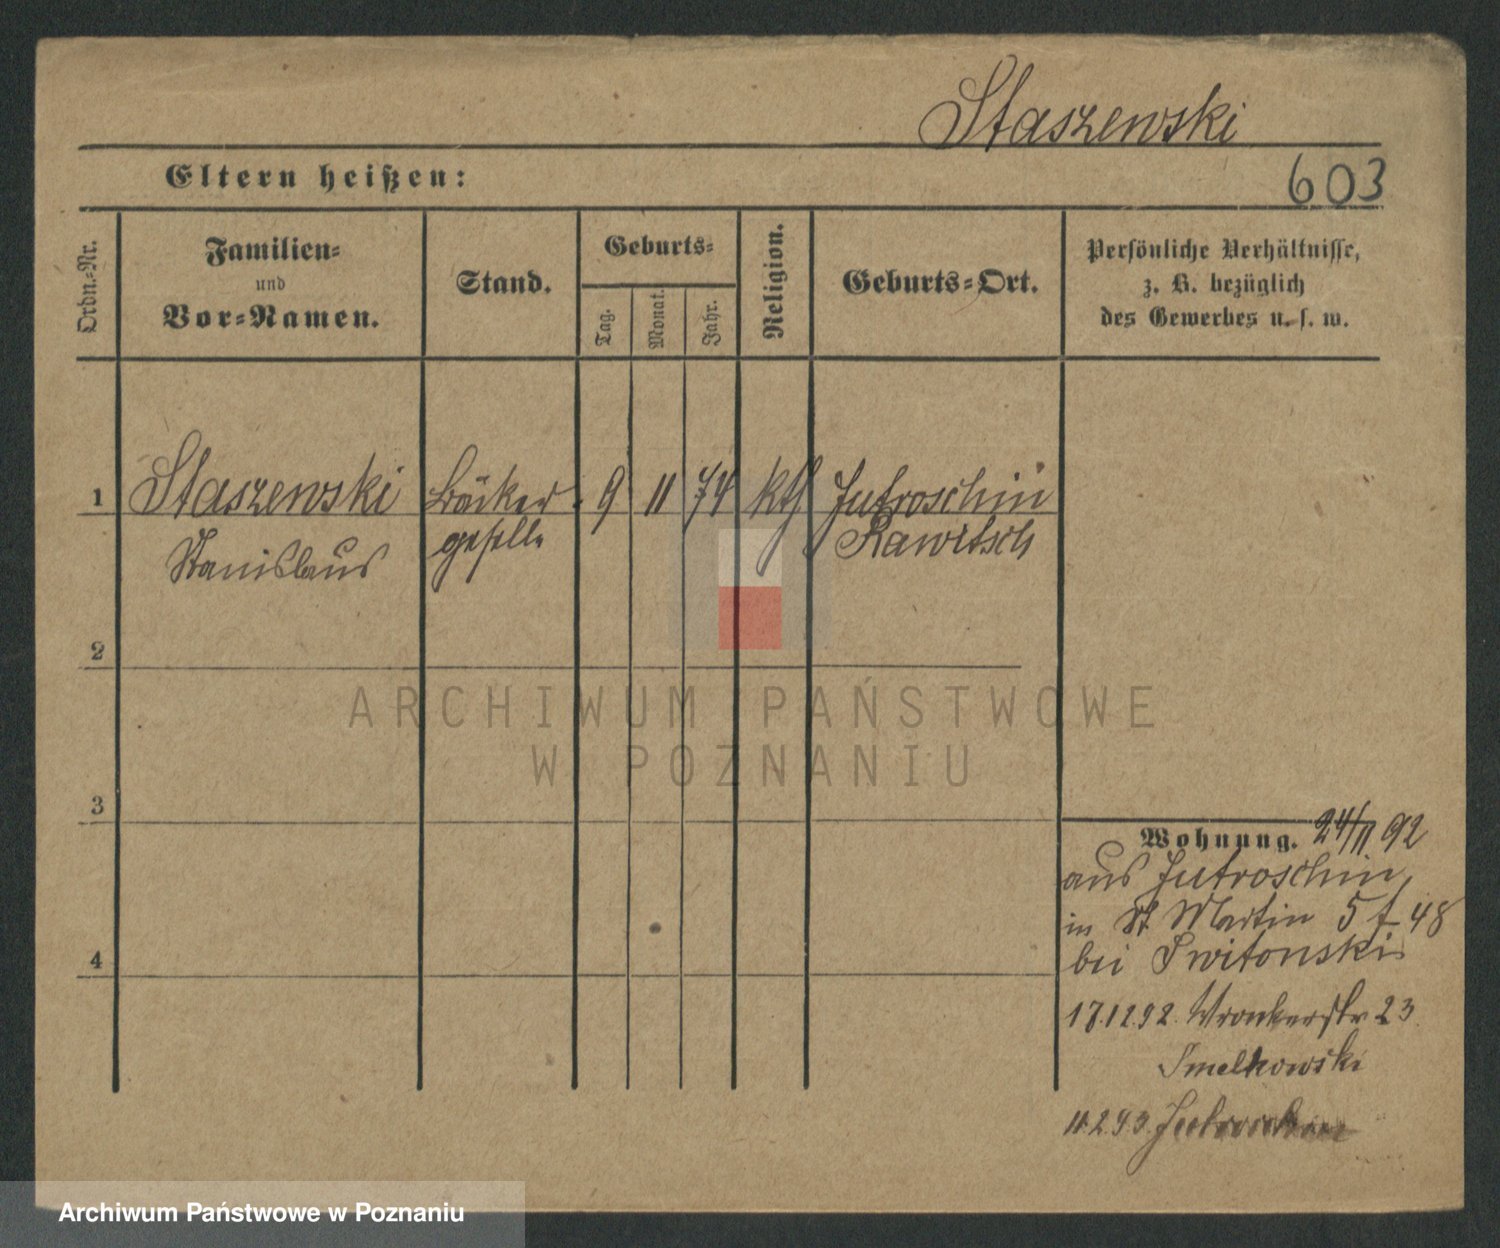 Staszewski
Eltern heißen:
603
Ordn.=Nr.
Familien=
und
Vor=Namen.
Stand.
Geburts=
Tag.
Monat.
Jahr.
Religion.
Geburts=Ort.
Persönliche Verhältnisse,
z. B. bezüglich
des Gewerbes u. s. w.
1 Staszewski Bäcker 9 11 74 kth Jutroschin
Stanislaus geselle Rawitsch
2
3
4
ARCHIWUM PAŃSTWOWE
W POZNANIU
Wohnung. 24/11 92
aus Jutroschin,
in St Martin 5 f 48
bei Switonski
17.12.92. Wronkerstr 23
Smelkowski
11.2.93. Jutroschin
Archiwum Państwowe w Poznaniu